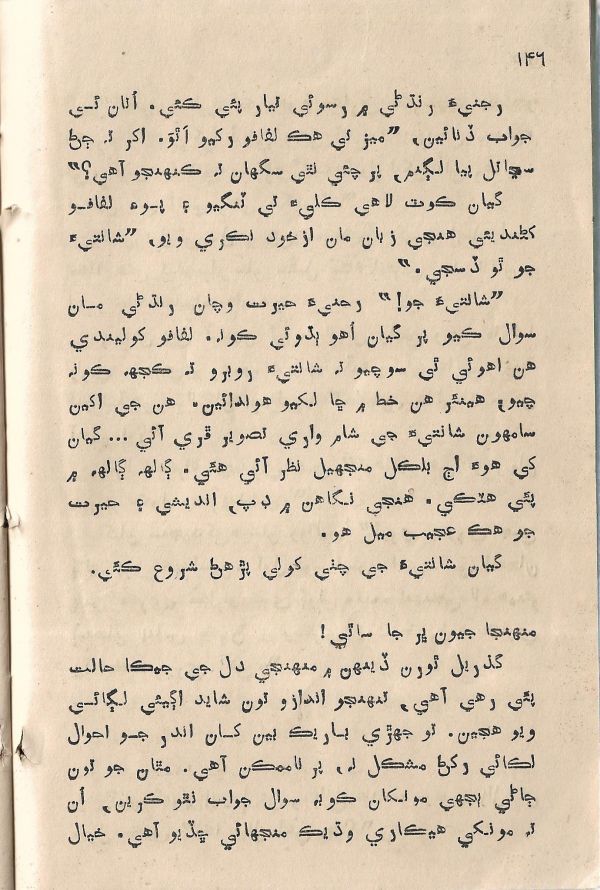 ۱۴٦
رجنيءَ رنڌڻي ۾ رسوئي تيار پئي ڪئي. اُتان ئـي
جواب ڏنائين، ”ميز تي هڪ لفافو رکيو آٿو. اکر تہ ڄڻ
سڃاتل پيا لڳنم، پر چئي نٿي سگهان تہ ڪنهنجو آهي؟“
گيان ڪوٽ لاهي ڪليءَ تي ٽنگيو ۽ پـوءِ لفافـو
کڻنديئي هنجي زبان مان ازخود نڪري ويو، ”شانتيءَ
جو ٿو ڏسجي.“
”شانتيءَ جو!“ رجنيءَ حيرت وچان رنڌڻي مـان
سوال ڪيو پر گيان اُهو ٻڌوئي ڪونہ. لفافو کوليندي
هن اهوئي ٿي سوچيو تہ شانتيءَ روبرو تہ ڪجهہ ڪونہ
چيو، هينئر هن خط ۾ ڇا لکيو هوندائين. هن جي اکين
سامهون شانتيءَ جي شام واري تصوير ڦري آئي ... گيان
کي هوءَ اڄ بلڪل منجهيل نظر آئي هئي. ڳالهہ ڳالهہ ۾
پئي هٽڪي. هنجي نگاهن ۾ ڊپ، انديشي ۽ حيرت
جو هڪ عجيب ميل هو.
گيان شانتيءَ جي چٺي کولي پڙهڻ شروع ڪئي.
منهنجا جيون ڀر جا ساٿي!
گذريل ٿورن ڏينهن ۾ منهنجي دل جي جيڪا حالت
پئي رهي آهي، تنهنجو اندازو تون شايد اڳيئي لڳائـي
ويو هجين. تو جهڙي باريڪ بين کـان اندر جـو احوال
لڪائي رکڻ مشڪل نہ، پر ناممڪن آهي. مٿان جو تون
ڄاڻي ٻجهي مونکان ڪوبہ سوال جواب نٿو ڪرين، اُن
تہ مونکي هيڪاري وڌيڪ منجهائي ڇڏيو آهي. خيال